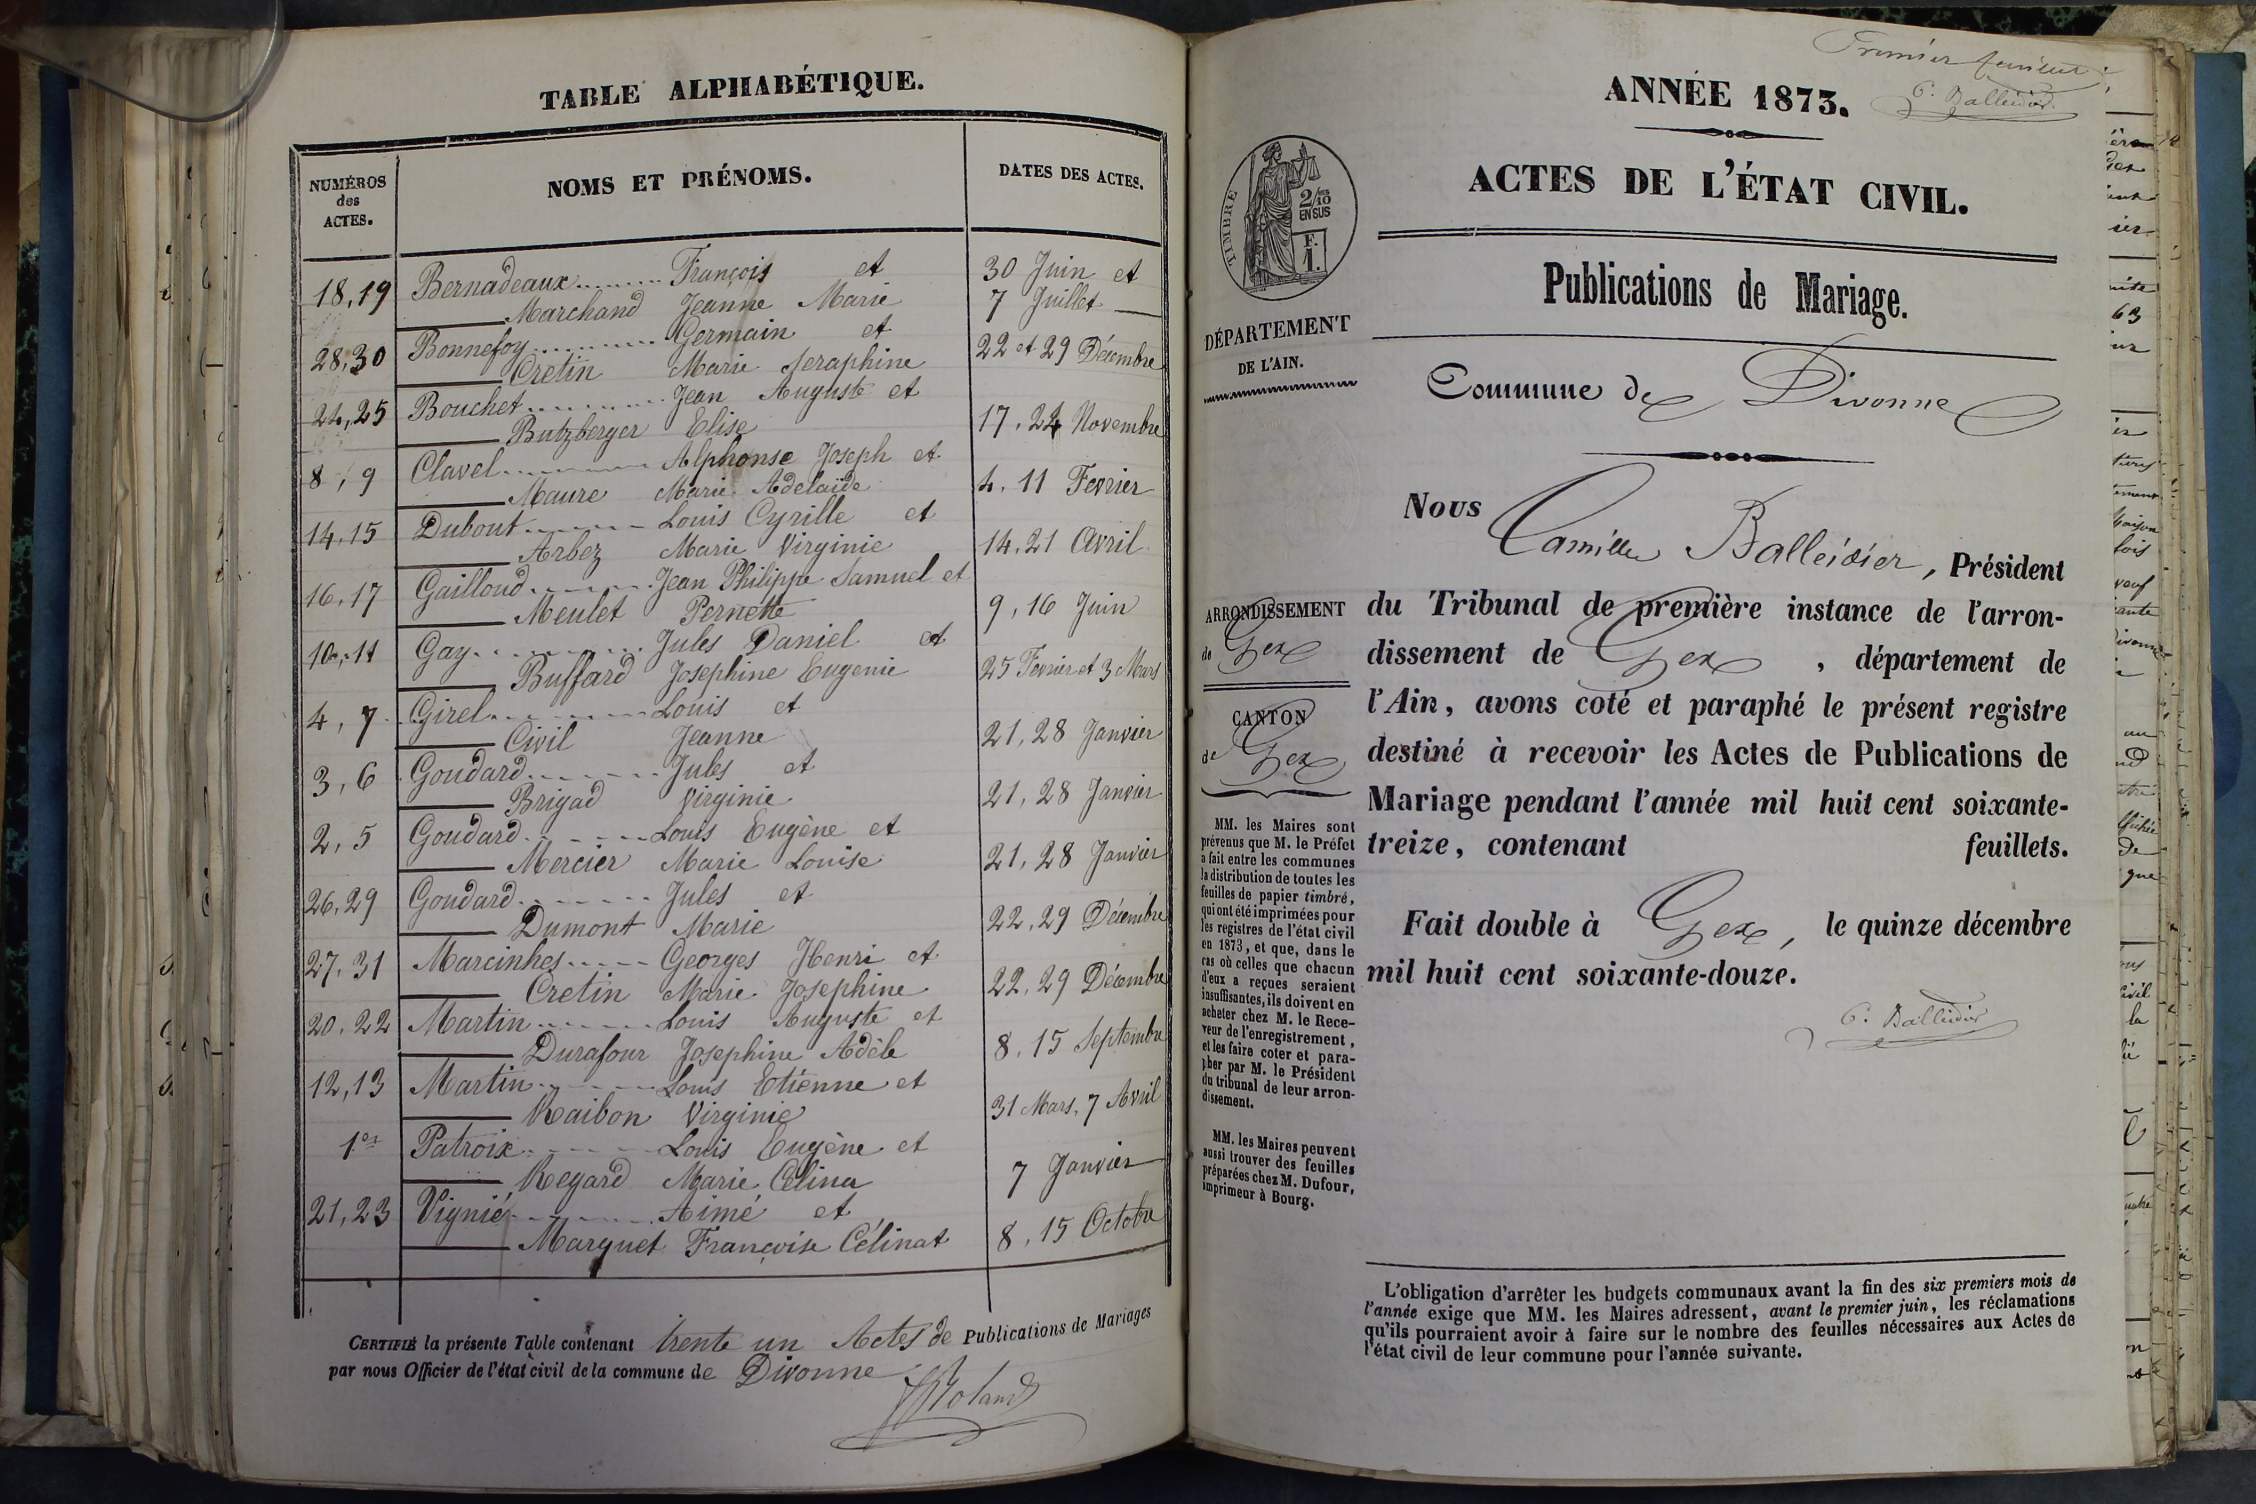 TABLE ALPHABÉTIQUE.
NUMÉROS des ACTES.
NOMS ET PRÉNOMS.
DATES DES ACTES.
18,19 Bernadeaux François et 30 Juin et
Marchand Jeanne Marie 7 Juillet
28,30 Bonnefoy Germain et 22 et 29 Décembre
Cretin Marie Seraphine
24,25 Bouchet Jean Auguste et 17, 24 Novembre
Butzberger Elise
8, 9 Clavel Alphonse Joseph et 4, 11 Fevrier
Maure Marie Adelaïde
14,15 Dubout Louis Cyrille et 14, 21 Avril
Arbez Marie Virginie
16,17 Gailloud Jean Philippe Samuel et 9, 16 Juin
Meulet Pernette
10,11 Gay Jules Daniel et 25 Fevrier et 3 Mars
Buffard Josephine Eugenie
4, 7 Girel Louis et 21, 28 Janvier
Civil Jeanne
3, 6 Goudard Jules et 21, 28 Janvier
Brigad Virginie
2, 5 Goudard Louis Eugène et 21, 28 Janvier
Mercier Marie Louise
26,29 Goudard Jules et 22, 29 Décembre
Dumont Marie
27,31 Marcinhes Georges Henri et 22, 29 Décembre
Cretin Marie Josephine
20,22 Martin Louis Auguste et 8, 15 Septembre
Durafour Josephine Adèle
12,13 Martin Louis Etienne et 31 Mars, 7 Avril
Maibon Virginie
1er Patroix Louis Eugène et 7 Janvier
Regard Marie Célina
21,23 Vignié Aimé et 8, 15 Octobre
Marquet Françoise Célinat
CERTIFIÉ la présente Table contenant trente un Actes de Publications de Mariages
par nous Officier de l'état civil de la commune de Divonne
Roland
Premier feuillet
C. Balleidier
ANNÉE 1873.
ACTES DE L'ÉTAT CIVIL.
TIMBRE
2/10 EN SUS
F. 1.
Publications de Mariage.
DÉPARTEMENT
DE L'AIN.
Commune de Divonne
Nous Camille Balleidier, Président
du Tribunal de première instance de l'arron-
dissement de Gex, département de
l'Ain, avons coté et paraphé le présent registre
destiné à recevoir les Actes de Publications de
Mariage pendant l'année mil huit cent soixante-
treize, contenant feuillets.
Fait double à Gex, le quinze décembre
mil huit cent soixante-douze.
C. Balleidier
ARRONDISSEMENT
de Gex
CANTON
de Gex
MM. les Maires sont
prévenus que M. le Préfet
a fait entre les communes
la distribution de toutes les
feuilles de papier timbré,
qui ont été imprimées pour
les registres de l'état civil
en 1873, et que, dans le
cas où celles que chacun
d'eux a reçues seraient
insuffisantes, ils doivent en
acheter chez M. le Rece-
veur de l'enregistrement,
et les faire coter et para-
pher par M. le Président
du tribunal de leur arron-
dissement.
MM. les Maires peuvent
aussi trouver des feuilles
préparées chez M. Dufour,
imprimeur à Bourg.
L'obligation d'arrêter les budgets communaux avant la fin des six premiers mois de
l'année exige que MM. les Maires adressent, avant le premier juin, les réclamations
qu'ils pourraient avoir à faire sur le nombre des feuilles nécessaires aux Actes de
l'état civil de leur commune pour l'année suivante.